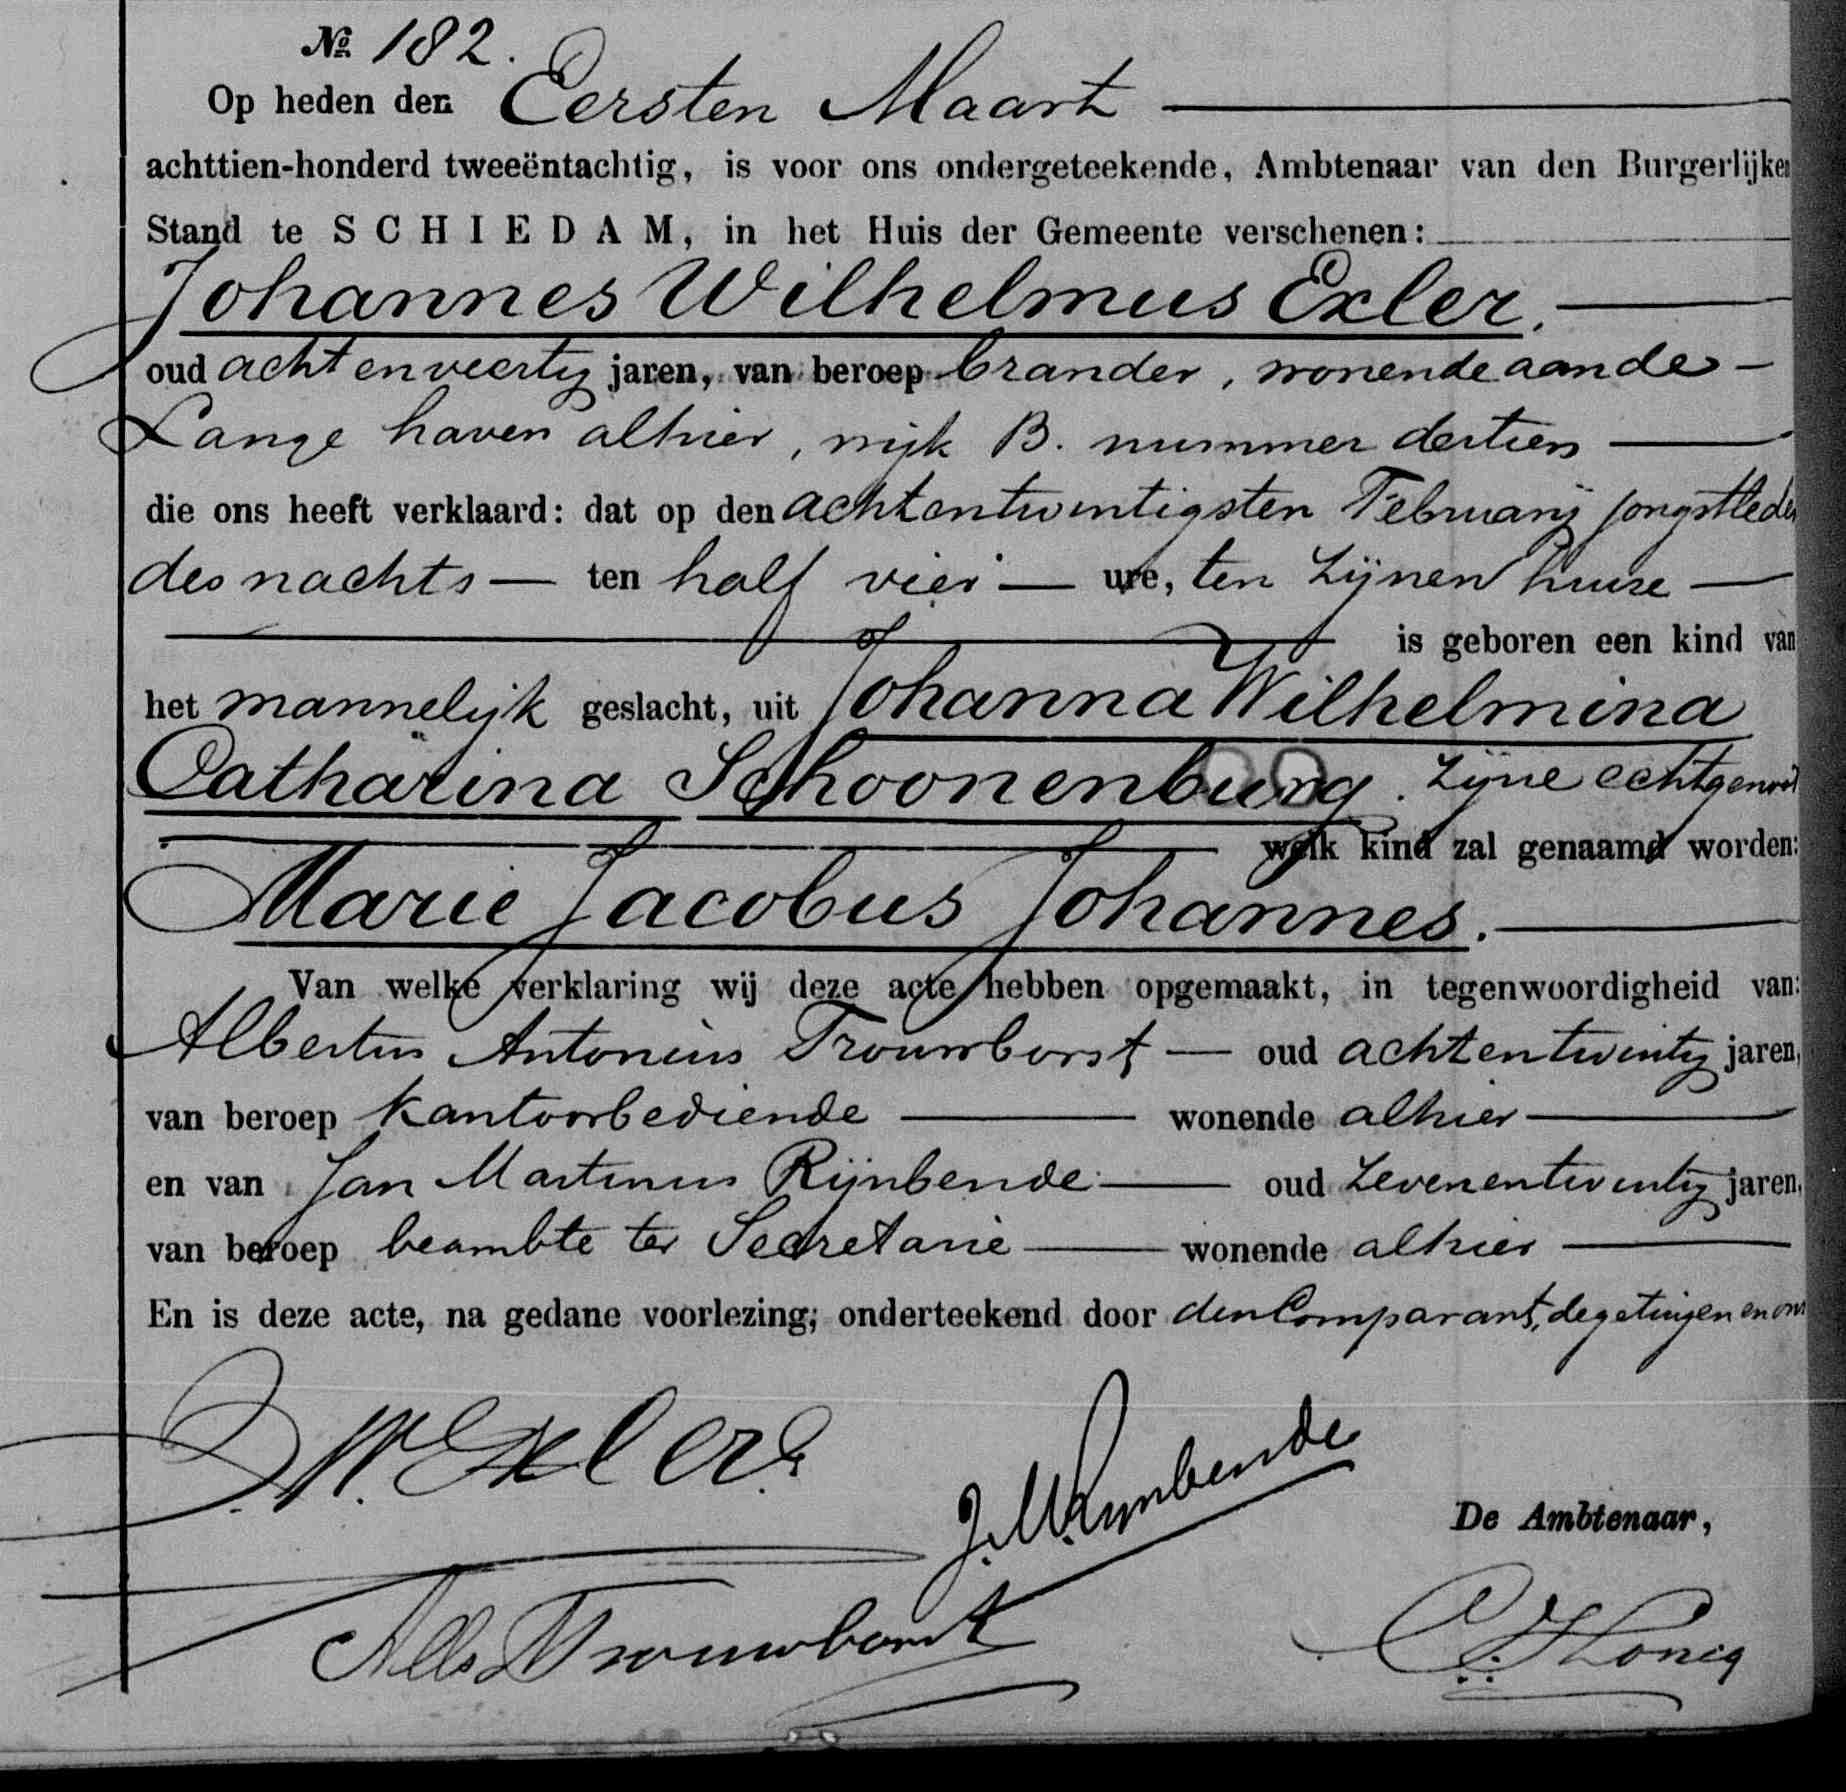 No 182.
Op heden den Eersten Maart
achttien-honderd tweeëntachtig, is voor ons ondergeteekende, Ambtenaar van den Burgerlijken
Stand te SCHIEDAM, in het Huis der Gemeente verschenen:
Johannes Wilhelmus Exler.
oud achtenveertig jaren, van beroep brander, wonende aan de
Lange haven alhier, wijk B. nummer dertien
die ons heeft verklaard: dat op den achtentwintigsten Februarij jongstleden
des nachts ten half vier ure, ten zijnen huize
is geboren een kind van
het mannelijk geslacht, uit Johanna Wilhelmina
Catharina Schoonenburg. zijne echtgenoot
welk kind zal genaamd worden:
Marie Jacobus Johannes.
Van welke verklaring wij deze acte hebben opgemaakt, in tegenwoordigheid van:
Albertus Antonius Trouwborst oud achtentwintig jaren,
van beroep kantoorbediende wonende alhier
en van Jan Martinus Rijnbende oud zevenentwintig jaren,
van beroep beambte ter Secretarie wonende alhier
En is deze acte, na gedane voorlezing, onderteekend door den Comparant, de getuigen en ons
J.W. Exler
J.M. Rijnbende
De Ambtenaar,
Trouwborst
Honig